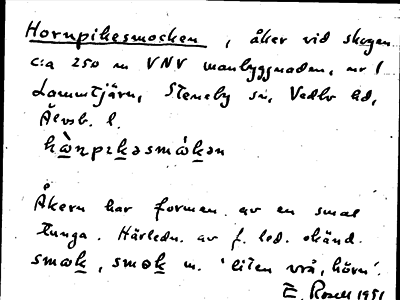 Hornpikesmocken, åker vid skogen
c:a 250 m VNV manbyggnaden, nr 1
Lammtjärn, Steneby sn, Vedbo hd,
Älvsb. l.
Åkern har formen av en smal
tunga. Härledn. av f. led. okänd.
smɷk, smɵk m. 'liten vrå, hörn'.
E. Rosell 1951